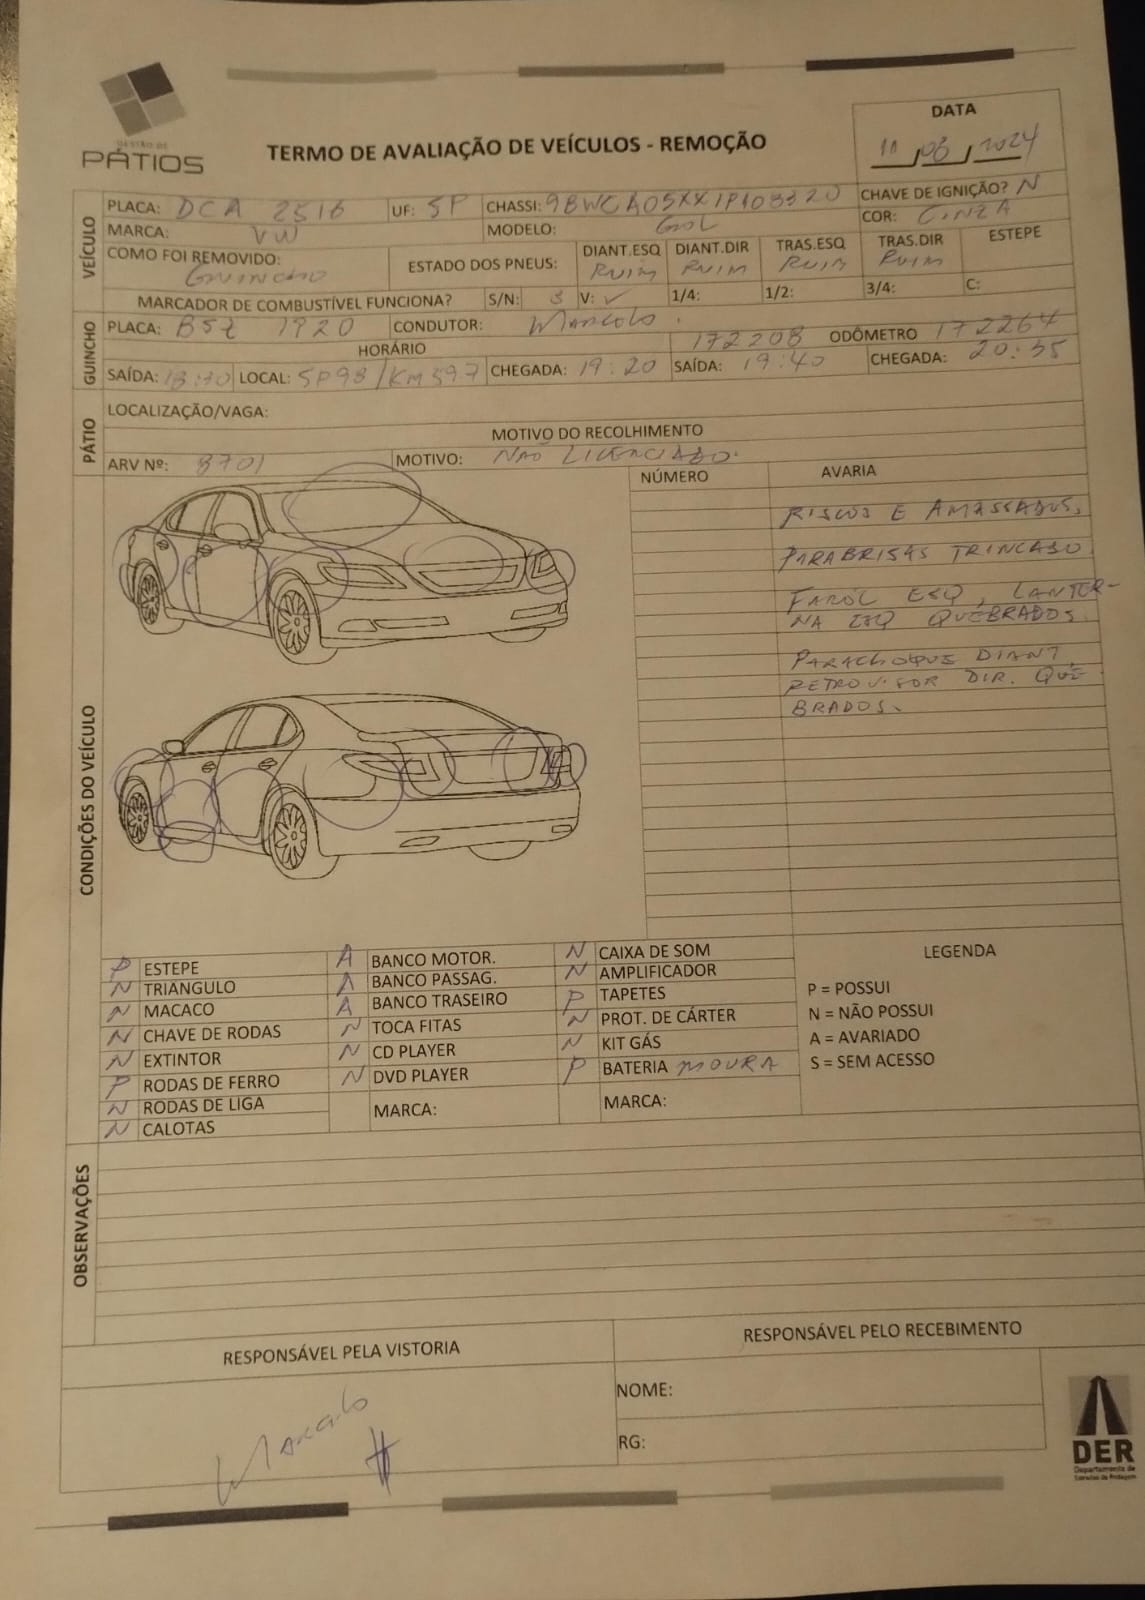 GESTÃO DE
PÁTIOS
TERMO DE AVALIAÇÃO DE VEÍCULOS - REMOÇÃO
DATA
08 / 2024
VEÍCULO
PLACA: DCA 2516 UF: SP CHASSI: CHAVE DE IGNIÇÃO? N
MARCA: VW MODELO: GOL COR: CINZA
COMO FOI REMOVIDO: GUINCHO
ESTADO DOS PNEUS: DIANT.ESQ RUIM DIANT.DIR RUIM TRAS.ESQ RUIM TRAS.DIR RUIM ESTEPE
MARCADOR DE COMBUSTÍVEL FUNCIONA? S/N: S V: ✓ 1/4: 1/2: 3/4: C:
GUINCHO
PLACA: CONDUTOR: MARCELO
HORÁRIO 172208 ODÔMETRO 172264
SAÍDA: 18:30 LOCAL: SP98/KM597 CHEGADA: 19:20 SAÍDA: 19:40 CHEGADA: 20:35
PÁTIO
LOCALIZAÇÃO/VAGA:
MOTIVO DO RECOLHIMENTO
ARV Nº: 8701 MOTIVO: NÃO LICENCIADO.
CONDIÇÕES DO VEÍCULO
NÚMERO AVARIA
RISCOS E AMASSADOS,
PARABRISAS TRINCADO
FAROL ESQ, LANTER-
NA ESQ QUEBRADOS.
PARACHOQUE DIANT.
RETROVISOR DIR. QUE
BRADOS.
P ESTEPE A BANCO MOTOR. N CAIXA DE SOM LEGENDA
N TRIANGULO A BANCO PASSAG. N AMPLIFICADOR
N MACACO A BANCO TRASEIRO P TAPETES P = POSSUI
N CHAVE DE RODAS N TOCA FITAS N PROT. DE CÁRTER N = NÃO POSSUI
N EXTINTOR N CD PLAYER N KIT GÁS A = AVARIADO
P RODAS DE FERRO N DVD PLAYER P BATERIA MOURA S = SEM ACESSO
N RODAS DE LIGA MARCA: MARCA:
N CALOTAS
OBSERVAÇÕES
RESPONSÁVEL PELA VISTORIA RESPONSÁVEL PELO RECEBIMENTO
Marcelo
NOME:
RG:
DER
Departamento de
Estradas de Rodagem